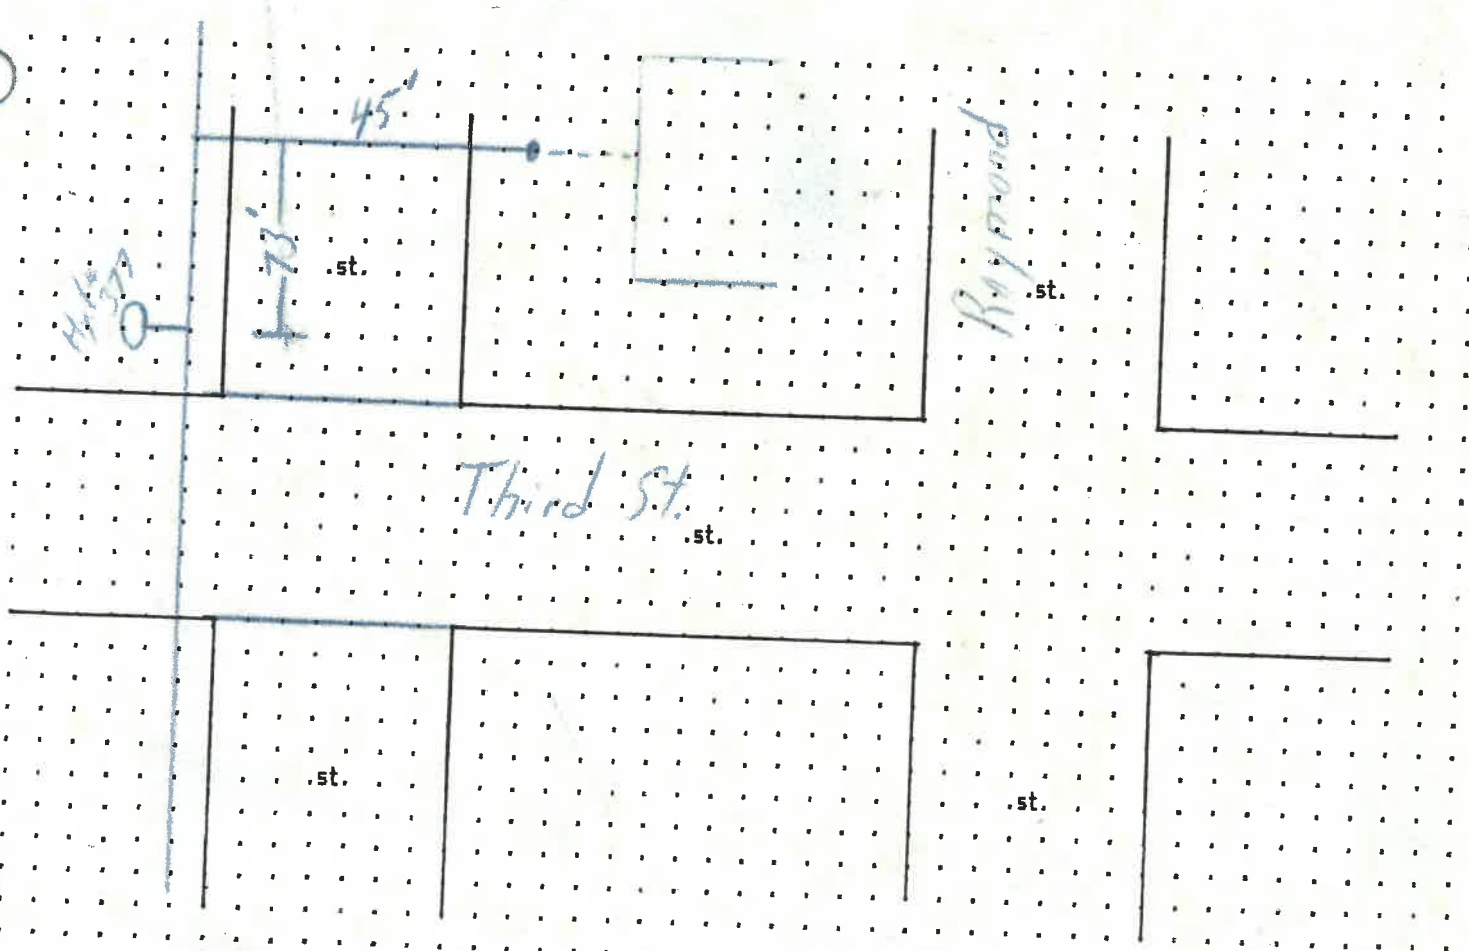 45'
73'
.st.
Raymond
.st.
Third St.
.st.
.st.
.st.